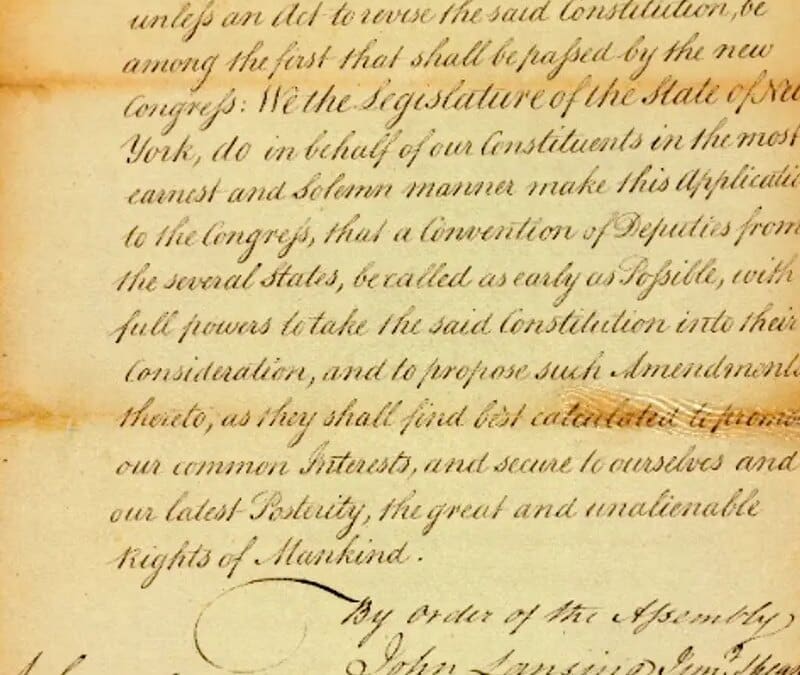 unleſs an Act to revise the said Constitution, be
among the first that shall be paſsed by the new
Congreſs: We the Legislature of the State of New
York, do in behalf of our Constituents in the most
earnest and Solemn manner make this Applicati
to the Congreſs, that a Convention of Deputies from
the several States, be called as early as Poſsible, with
full powers to take the said Constitution into their
Consideration, and to propose such Amendments
thereto, as they shall find best calculated to promo
our common Interests, and secure to ourselves and
our latest Posterity, the great and unalienable
Rights of Mankind.
By order of the Aſsembly
John Lansing Junr.